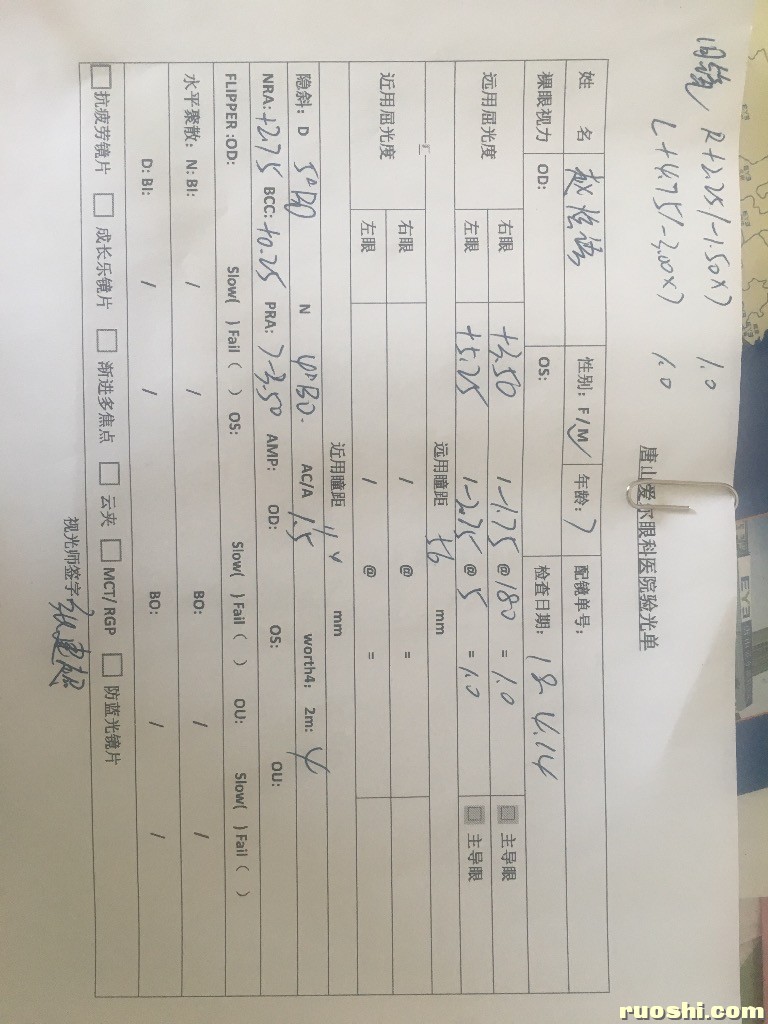 旧镜 R+2.25/-1.50X7 1.0
L+4.75/-3.00X7 1.0
唐山爱尔眼科医院验光单
姓 名 性别: F/M 年龄: 7 配镜单号:
裸眼视力 OD: OS: 检查日期: 18.4.14
远用屈光度 右眼 +3.50 /-1.75 @ 180 = 1.0 主导眼
左眼 +5.25 /-2.75 @ 5 = 1.0 主导眼
远用瞳距 56 mm
近用屈光度 右眼 / @ =
左眼 / @ =
近用瞳距 mm
隐斜: D 5△BO N 4△BO. AC/A 1.5 worth4: 2m: 4
NRA: +2.75 BCC: +0.25 PRA: >-3.50 AMP: OD: OS: OU:
FLIPPER :OD: Slow( ) Fail ( ) OS: Slow( ) Fail ( ) OU: Slow( ) Fail ( )
水平聚散: N: BI: / / BO: / /
D: BI: / / BO: / /
抗疲劳镜片 成长乐镜片 渐进多焦点 云夹 MCT/ RGP 防蓝光镜片
视光师签字
EYE
ruoshi.com